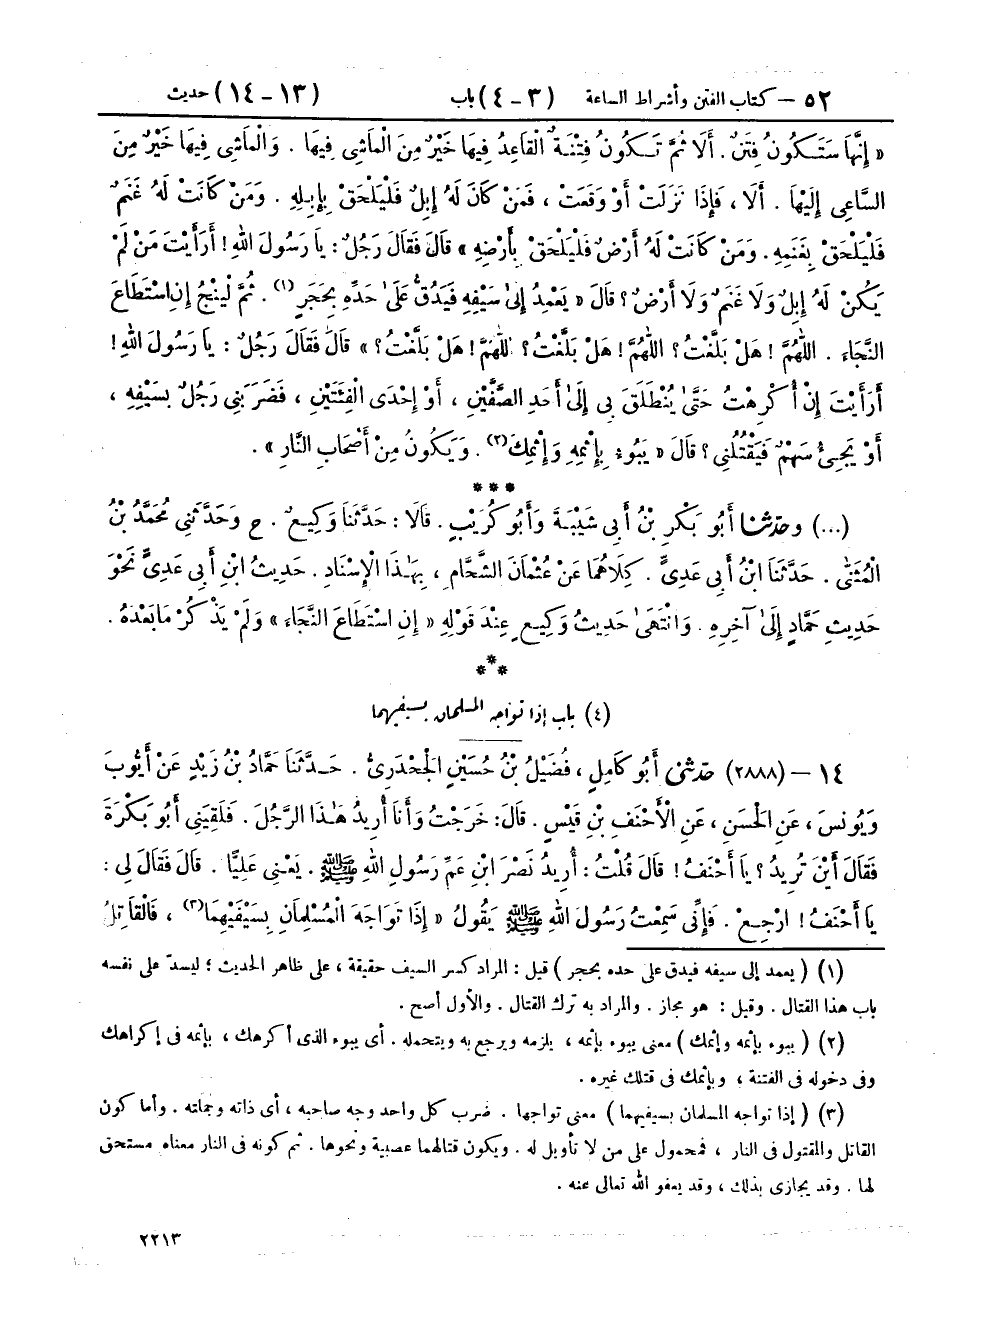 ٥٢ – كتاب الفتن وأشراط الساعة (٣ – ٤) باب (١٣ – ١٤) حديث
« إِنَّهَا سَتَكُونُ فِتَنٌ . أَلَا ثُمَّ تَكُونُ فِتْنَةٌ الْقَاعِدُ فِيهَا خَيْرٌ مِنَ الْمَاشِى فِيهَا . وَالْمَاشِى فِيهَا خَيْرٌ مِنَ
السَّاعِى إِلَيْهَا . أَلَا ، فَإِذَا نَزَلَتْ أَوْ وَقَعَتْ ، فَمَنْ كَانَ لَهُ إِبِلٌ فَلْيَلْحَقْ بِإِبِلِهِ . وَمَنْ كَانَتْ لَهُ غَنَمٌ
فَلْيَلْحَقْ بِغَنَمِهِ . وَمَنْ كَانَتْ لَهُ أَرْضٌ فَلْيَلْحَقْ بِأَرْضِهِ » قَالَ فَقَالَ رَجُلٌ : يَا رَسُولَ اللهِ ! أَرَأَيْتَ مَنْ لَمْ
يَكُنْ لَهُ إِبِلٌ وَلَا غَنَمٌ وَلَا أَرْضٌ ؟ قَالَ « يَعْمِدُ إِلَىٰ سَيْفِهِ فَيَدُقُّ عَلَىٰ حَدِّهِ بِحَجَرٍ (١) . ثُمَّ لْيَنْجُ إِنِ اسْتَطَاعَ
النَّجَاءَ . اللّٰهُمَّ ! هَلْ بَلَّغْتُ ؟ اللّٰهُمَّ ! هَلْ بَلَّغْتُ ؟ اللّٰهُمَّ ! هَلْ بَلَّغْتُ ؟ » قَالَ فَقَالَ رَجُلٌ : يَا رَسُولَ اللهِ !
أَرَأَيْتَ إِنْ أُكْرِهْتُ حَتَّىٰ يُنْطَلَقَ بِى إِلَىٰ أَحَدِ الصَّفَّيْنِ ، أَوْ إِحْدَى الْفِئَتَيْنِ ، فَضَرَبَنِى رَجُلٌ بِسَيْفِهِ ،
أَوْ يَجِئُ سَهْمٌ فَيَقْتُلُنِى ؟ قَالَ « يَبُوءُ بِإِثْمِهِ وَإِثْمِكَ (٢) . وَيَكُونُ مِنْ أَصْحَابِ النَّارِ » .
***
(...) وحدّثنا أَبُو بَكْرِ بْنُ أَبِى شَيْبَةَ وَأَبُو كُرَيْبٍ . قَالَا : حَدَّثَنَا وَكِيعٌ . ح وَحَدَّثَنِى مُحَمَّدُ بْنُ
الْمُثَنَّىٰ . حَدَّثَنَا ابْنُ أَبِى عَدِىٍّ . كِلَاهُمَا عَنْ عُثْمَانَ الشَّحَّامِ ، بِهَـٰذَا الْإِسْنَادِ . حَدِيثُ ابْنِ أَبِى عَدِىٍّ نَحْوَ
حَدِيثِ حَمَّادٍ إِلَىٰ آخِرِهِ . وَانْتَهَىٰ حَدِيثُ وَكِيعٍ عِنْدَ قَوْلِهِ « إِنِ اسْتَطَاعَ النَّجَاءَ » وَلَمْ يَذْكُرْ مَا بَعْدَهُ .
***
(٤) باب إذا تواجه المسلمان بسيفيهما
١٤ – (٢٨٨٨) حدّثنى أَبُو كَامِلٍ ، فُضَيْلُ بْنُ حُسَيْنٍ الْجَحْدَرِىُّ . حَدَّثَنَا حَمَّادُ بْنُ زَيْدٍ عَنْ أَيُّوبَ
وَيُونُسَ ، عَنِ الْحَسَنِ ، عَنِ الْأَحْنَفِ بْنِ قَيْسٍ . قَالَ : خَرَجْتُ وَأَنَا أُرِيدُ هَـٰذَا الرَّجُلَ . فَلَقِيَنِى أَبُو بَكْرَةَ
فَقَالَ أَيْنَ تُرِيدُ ؟ يَا أَحْنَفُ ! قَالَ قُلْتُ : أُرِيدُ نَصْرَ ابْنِ عَمِّ رَسُولِ اللهِ ﷺ . يَعْنِى عَلِيًّا . قَالَ فَقَالَ لِى :
يَا أَحْنَفُ ! ارْجِعْ . فَإِنِّى سَمِعْتُ رَسُولَ اللهِ ﷺ يَقُولُ « إِذَا تَوَاجَهَ الْمُسْلِمَانِ بِسَيْفَيْهِمَا (٣) ، فَالْقَاتِلُ
(١) ( يعمد إلى سيفه فيدق على حده بحجر ) قيل : المراد كسر السيف حقيقة ، على ظاهر الحديث ؛ ليسدّ على نفسه
باب هذا القتال . وقيل : هو مجاز . والمراد به ترك القتال . والأول أصح .
(٢) ( يبوء بإثمه وإثمك ) معنى يبوء بإثمه ، يلزمه ويرجع به ويتحمله . أى يبوء الذى أكرهك ، بإثمه فى إكراهك
وفى دخوله فى الفتنة ، وبإثمك فى قتلك غيره .
(٣) ( إذا تواجه المسلمان بسيفيهما ) معنى تواجها . ضرب كل واحد وجه صاحبه ، أى ذاته وجملته . وأما كون
القاتل والمقتول فى النار ، فمحمول على من لا تأويل له . ويكون قتالهما عصبية ونحوها . ثم كونه فى النار معناه مستحق
لها . وقد يجازى بذلك ، وقد يعفو الله تعالى عنه .
٢٢١٣